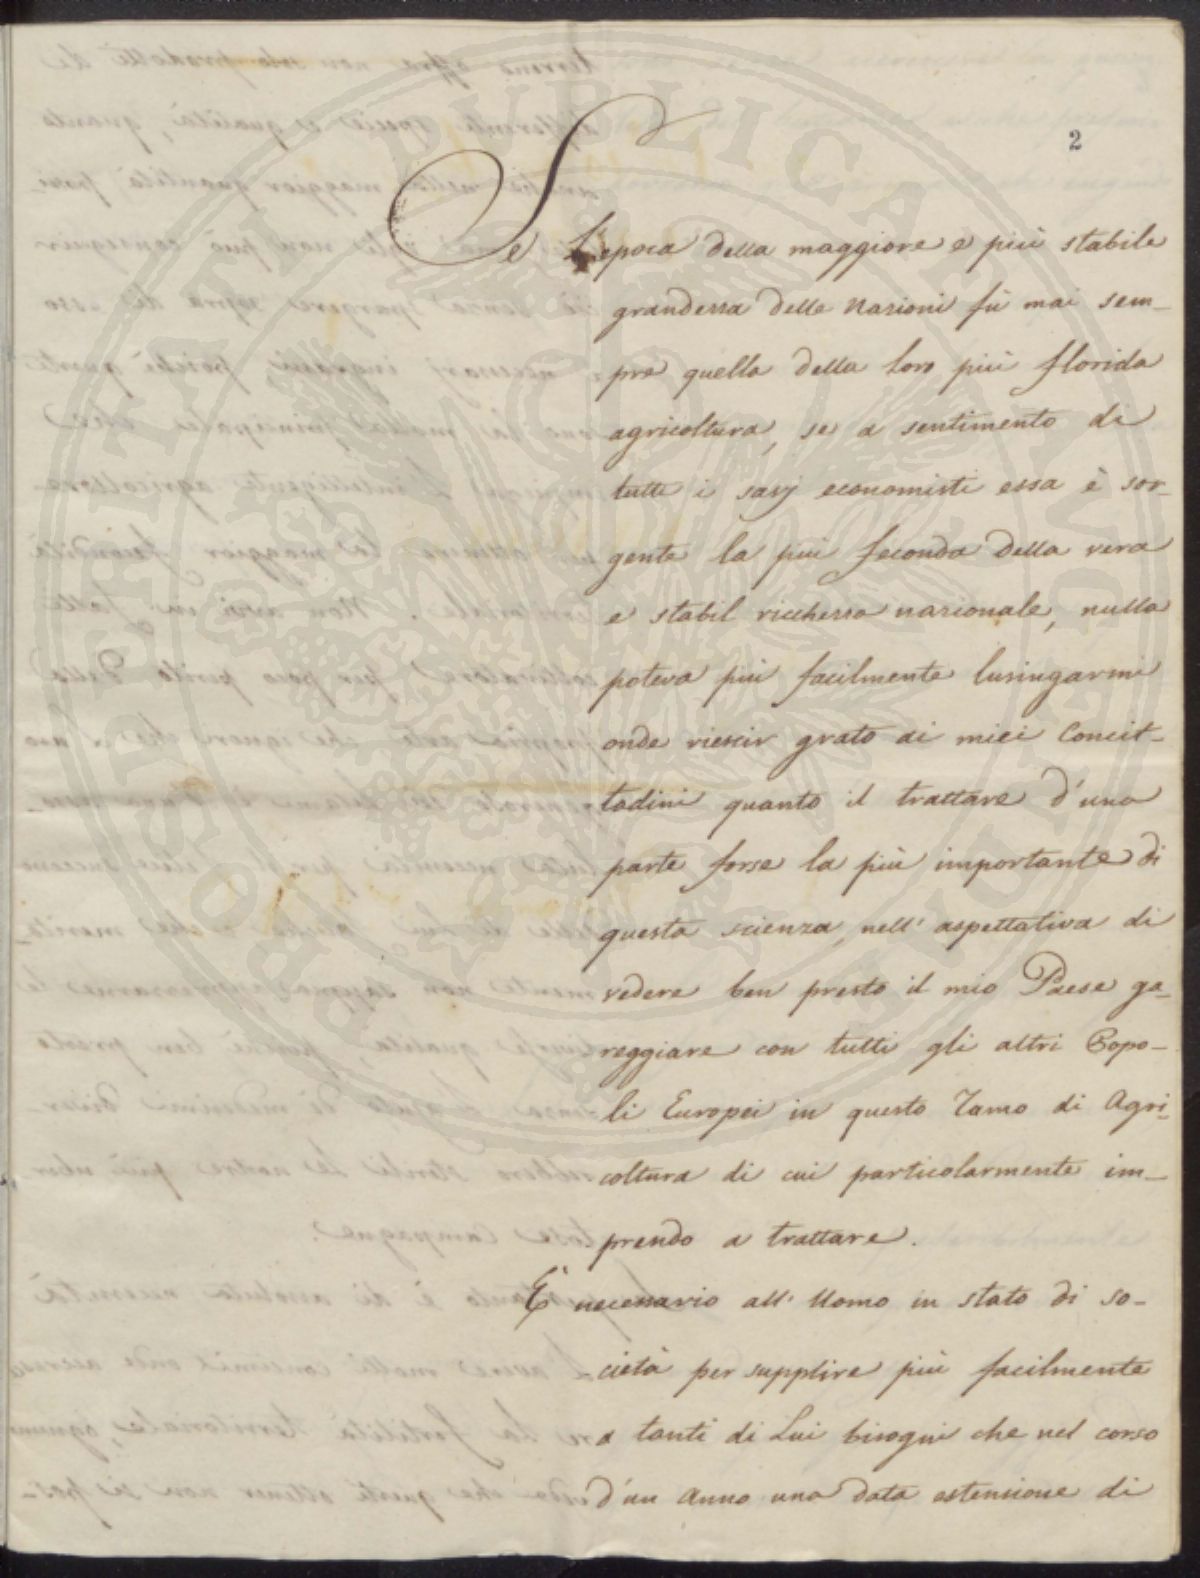 2
Se L'epoca della maggiore e più stabile
grandezza delle Nazioni fù mai sem-
pre quella della loro più florida
agricoltura, se a sentimento di
tutti i savj economisti essa è sor-
gente la più feconda della vera
e stabil ricchezza nazionale, nulla
poteva più facilmente lusingarmi
onde riescir grato ai miei Concit-
tadini quanto il trattare d'una
parte forse la più importante di
questa scienza, nell'aspettativa di
vedere ben presto il mio Paese ga-
reggiare con tutti gli altri Popo-
li Europei in questo Ramo di Agri-
coltura di cui particolarmente im-
prendo a trattare.
È necessario all'Uomo in stato di so-
cietà per supplire più facilmente
a tanti di Lui bisogni che nel corso
d'un Anno una data estensione di